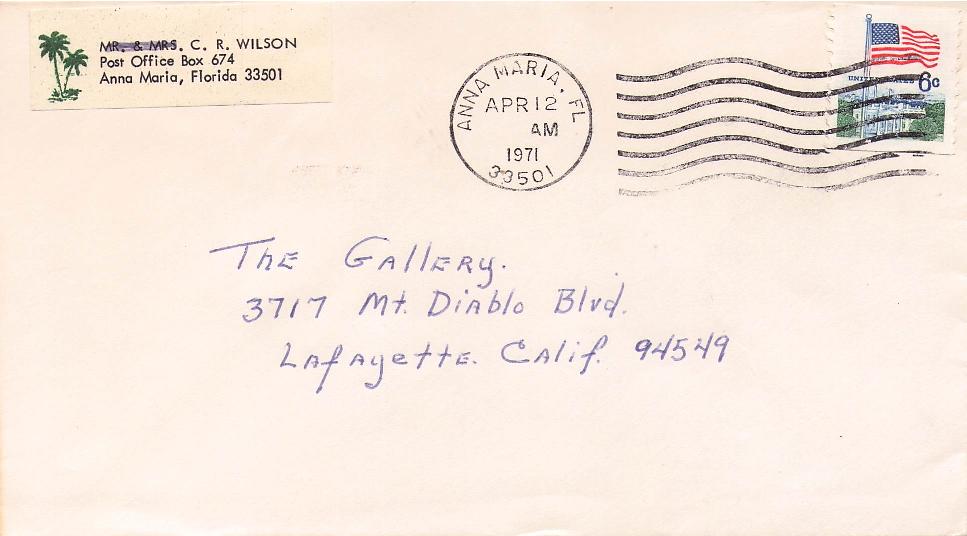 MR. & MRS. C. R. WILSON
Post Office Box 674
Anna Maria, Florida 33501
ANNA MARIA, FL
APR 12
AM
1971
33501
UNITED STATES 6c
The Gallery.
3717 Mt. Diablo Blvd.
Lafayette. Calif. 94549